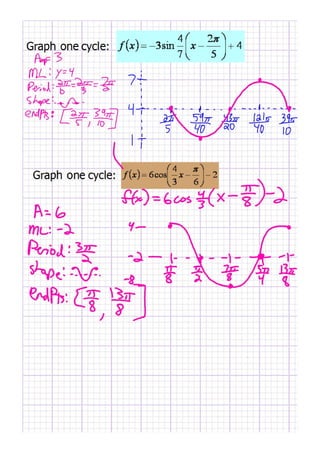 Graph one cycle: f(x) = -3sin 4/7 (x - 2π/5) + 4
Amp 3
ML: y=4
Period: 2π/b = 7π/2
Shape:
endpts: [2π/5, 39π/10]
7
4
1
2π/5 51π/40 43π/20 121π/40 39π/10
Graph one cycle: f(x) = 6cos(4/3 x - π/6) - 2
f(x) = 6 cos 4/3 (x - π/8) - 2
A = 6
ML: -2
Period: 3π/2
shape:
endpts: [π/8, 13π/8]
4
-2
-8
π/8 π/2 7π/8 5π/4 13π/8